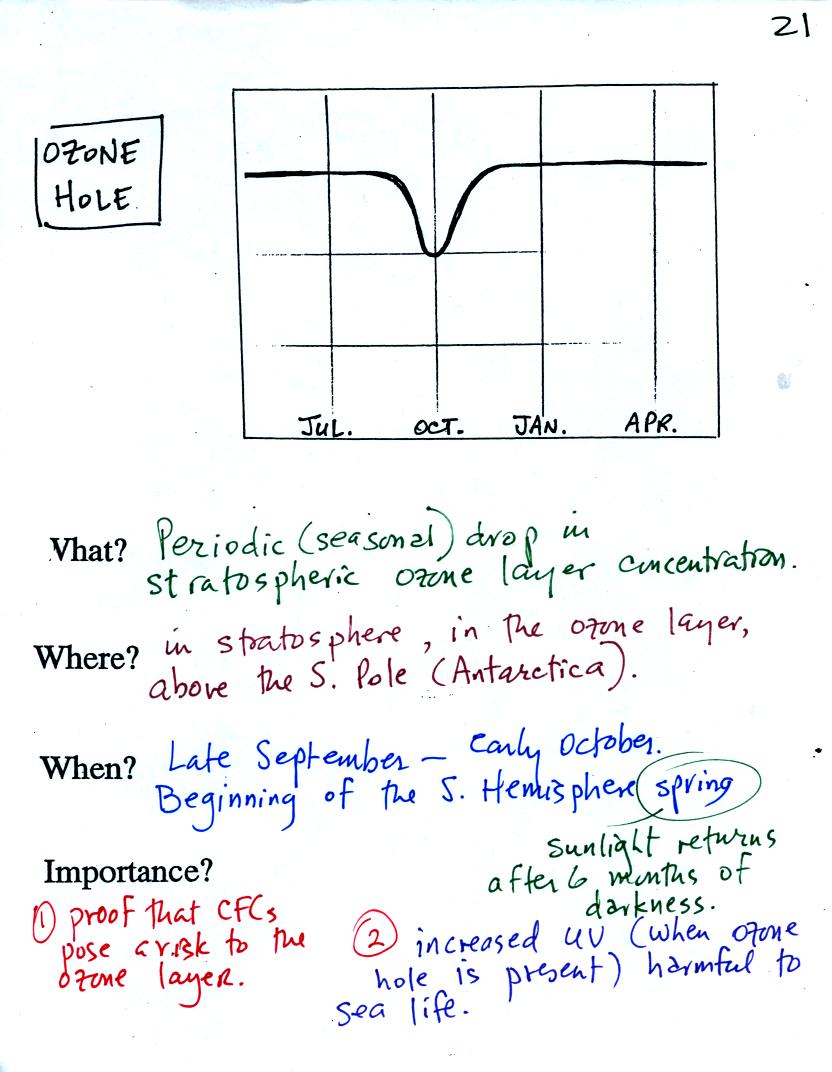 21
OZONE
HOLE
JUL. OCT. JAN. APR.
What? Periodic (seasonal) drop in
stratospheric ozone layer concentration.
Where? in stratosphere, in the ozone layer,
above the S. Pole (Antarctica).
When? Late September – early October.
Beginning of the S. Hemisphere spring
sunlight returns
after 6 months of
darkness.
Importance?
① proof that CFCs
pose a risk to the
ozone layer.
② increased UV (when ozone
hole is present) harmful to
sea life.